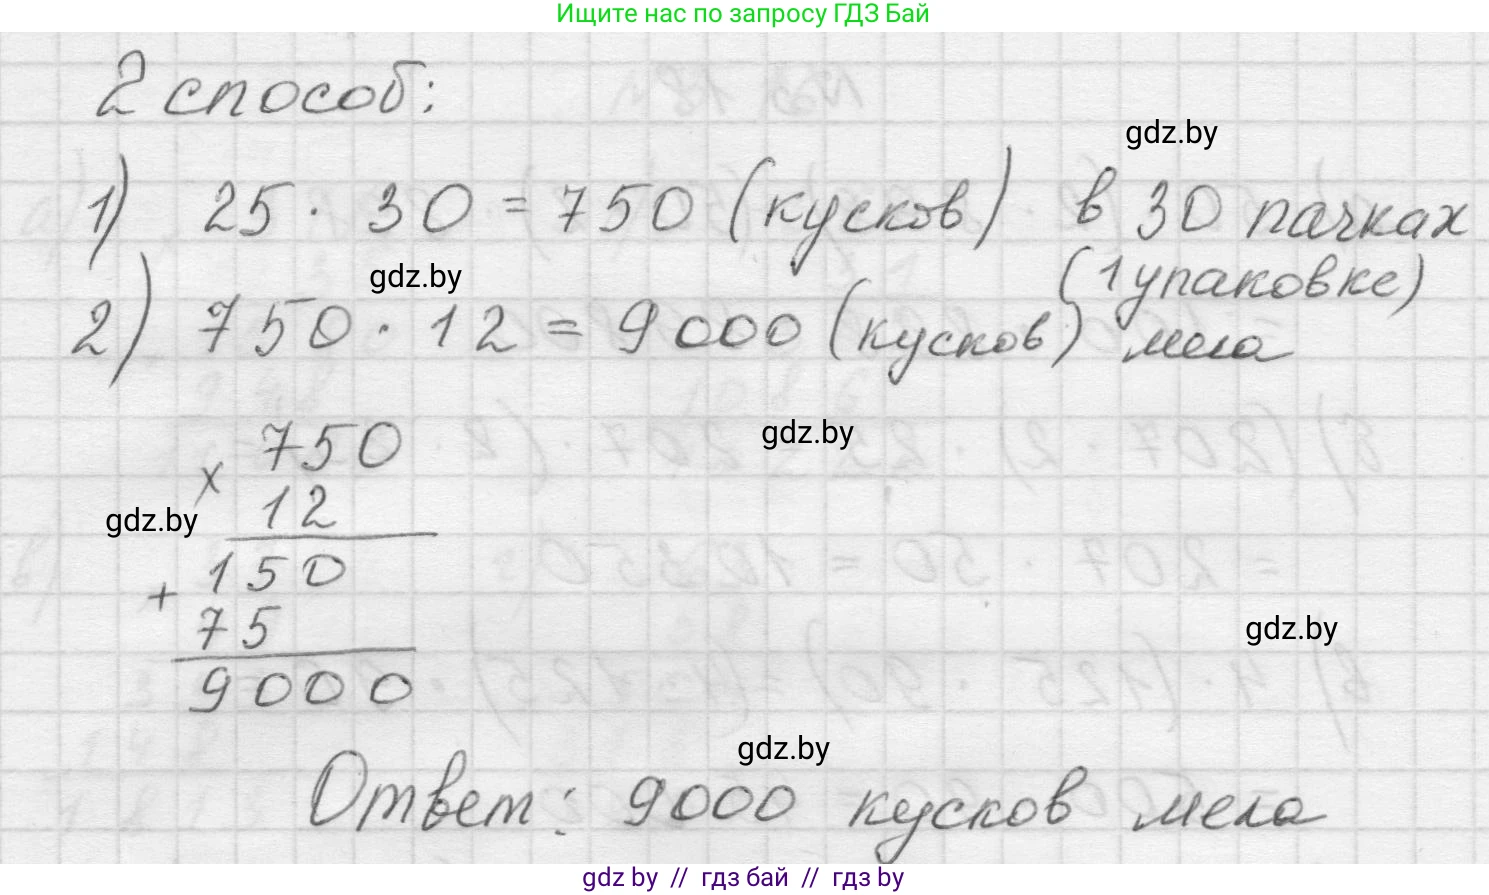 Ищите нас по запросу ГДЗ Бай
2 способ:
gdz.by
1) 25 · 30 = 750 (кусков) в 30 пачках
(1 упаковке)
gdz.by
2) 750 · 12 = 9000 (кусков) мела
750
gdz.by
×
12
gdz.by
150
+
75
gdz.by
9000
gdz.by
Ответ: 9000 кусков мела
gdz.by // гдз бай // гдз by